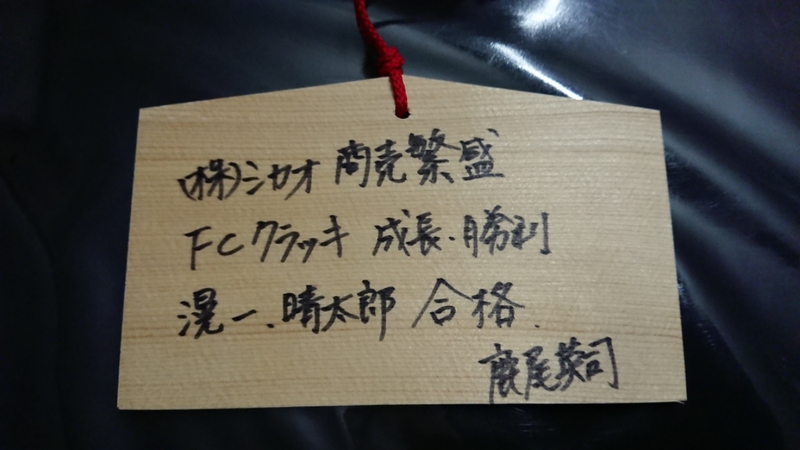 (株)シカオ 商売繁盛
FCクラッキ 成長・勝利
滉一、晴太郎 合格.
鹿尾英司